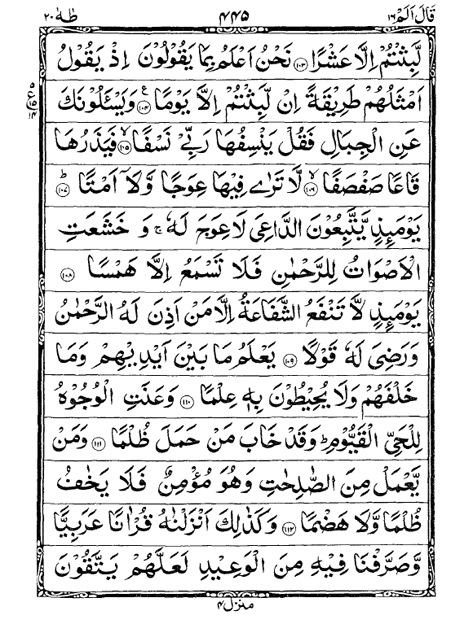 قَالَ اَلَمْ ١٦
٤٤٥
طٰهٰ ٢٠
لَّبِثْتُمْ اِلَّا عَشْرًا ﴿١٠٣﴾ نَحْنُ اَعْلَمُ بِمَا يَقُوْلُوْنَ اِذْ يَقُوْلُ
اَمْثَلُهُمْ طَرِيْقَةً اِنْ لَّبِثْتُمْ اِلَّا يَوْمًا ﴿١٠٤﴾ وَيَسْـَٔلُوْنَكَ
عَنِ الْجِبَالِ فَقُلْ يَنْسِفُهَا رَبِّيْ نَسْفًا ﴿١٠٥﴾ فَيَذَرُهَا
قَاعًا صَفْصَفًا ﴿١٠٦﴾ لَّا تَرٰى فِيْهَا عِوَجًا وَّلَاۤ اَمْتًا ﴿١٠٧﴾
يَوْمَئِذٍ يَّتَّبِعُوْنَ الدَّاعِيَ لَا عِوَجَ لَهٗ ۚ وَ خَشَعَتِ
الْاَصْوَاتُ لِلرَّحْمٰنِ فَلَا تَسْمَعُ اِلَّا هَمْسًا ﴿١٠٨﴾
يَوْمَئِذٍ لَّا تَنْفَعُ الشَّفَاعَةُ اِلَّا مَنْ اَذِنَ لَهُ الرَّحْمٰنُ
وَرَضِيَ لَهٗ قَوْلًا ﴿١٠٩﴾ يَعْلَمُ مَا بَيْنَ اَيْدِيْهِمْ وَمَا
خَلْفَهُمْ وَلَا يُحِيْطُوْنَ بِهٖ عِلْمًا ﴿١١٠﴾ وَعَنَتِ الْوُجُوْهُ
لِلْحَيِّ الْقَيُّوْمِ ؕ وَقَدْ خَابَ مَنْ حَمَلَ ظُلْمًا ﴿١١١﴾ وَمَنْ
يَّعْمَلْ مِنَ الصّٰلِحٰتِ وَهُوَ مُؤْمِنٌ فَلَا يَخٰفُ
ظُلْمًا وَّلَا هَضْمًا ﴿١١٢﴾ وَكَذٰلِكَ اَنْزَلْنٰهُ قُرْاٰنًا عَرَبِيًّا
وَّصَرَّفْنَا فِيْهِ مِنَ الْوَعِيْدِ لَعَلَّهُمْ يَتَّقُوْنَ
منزل ٤